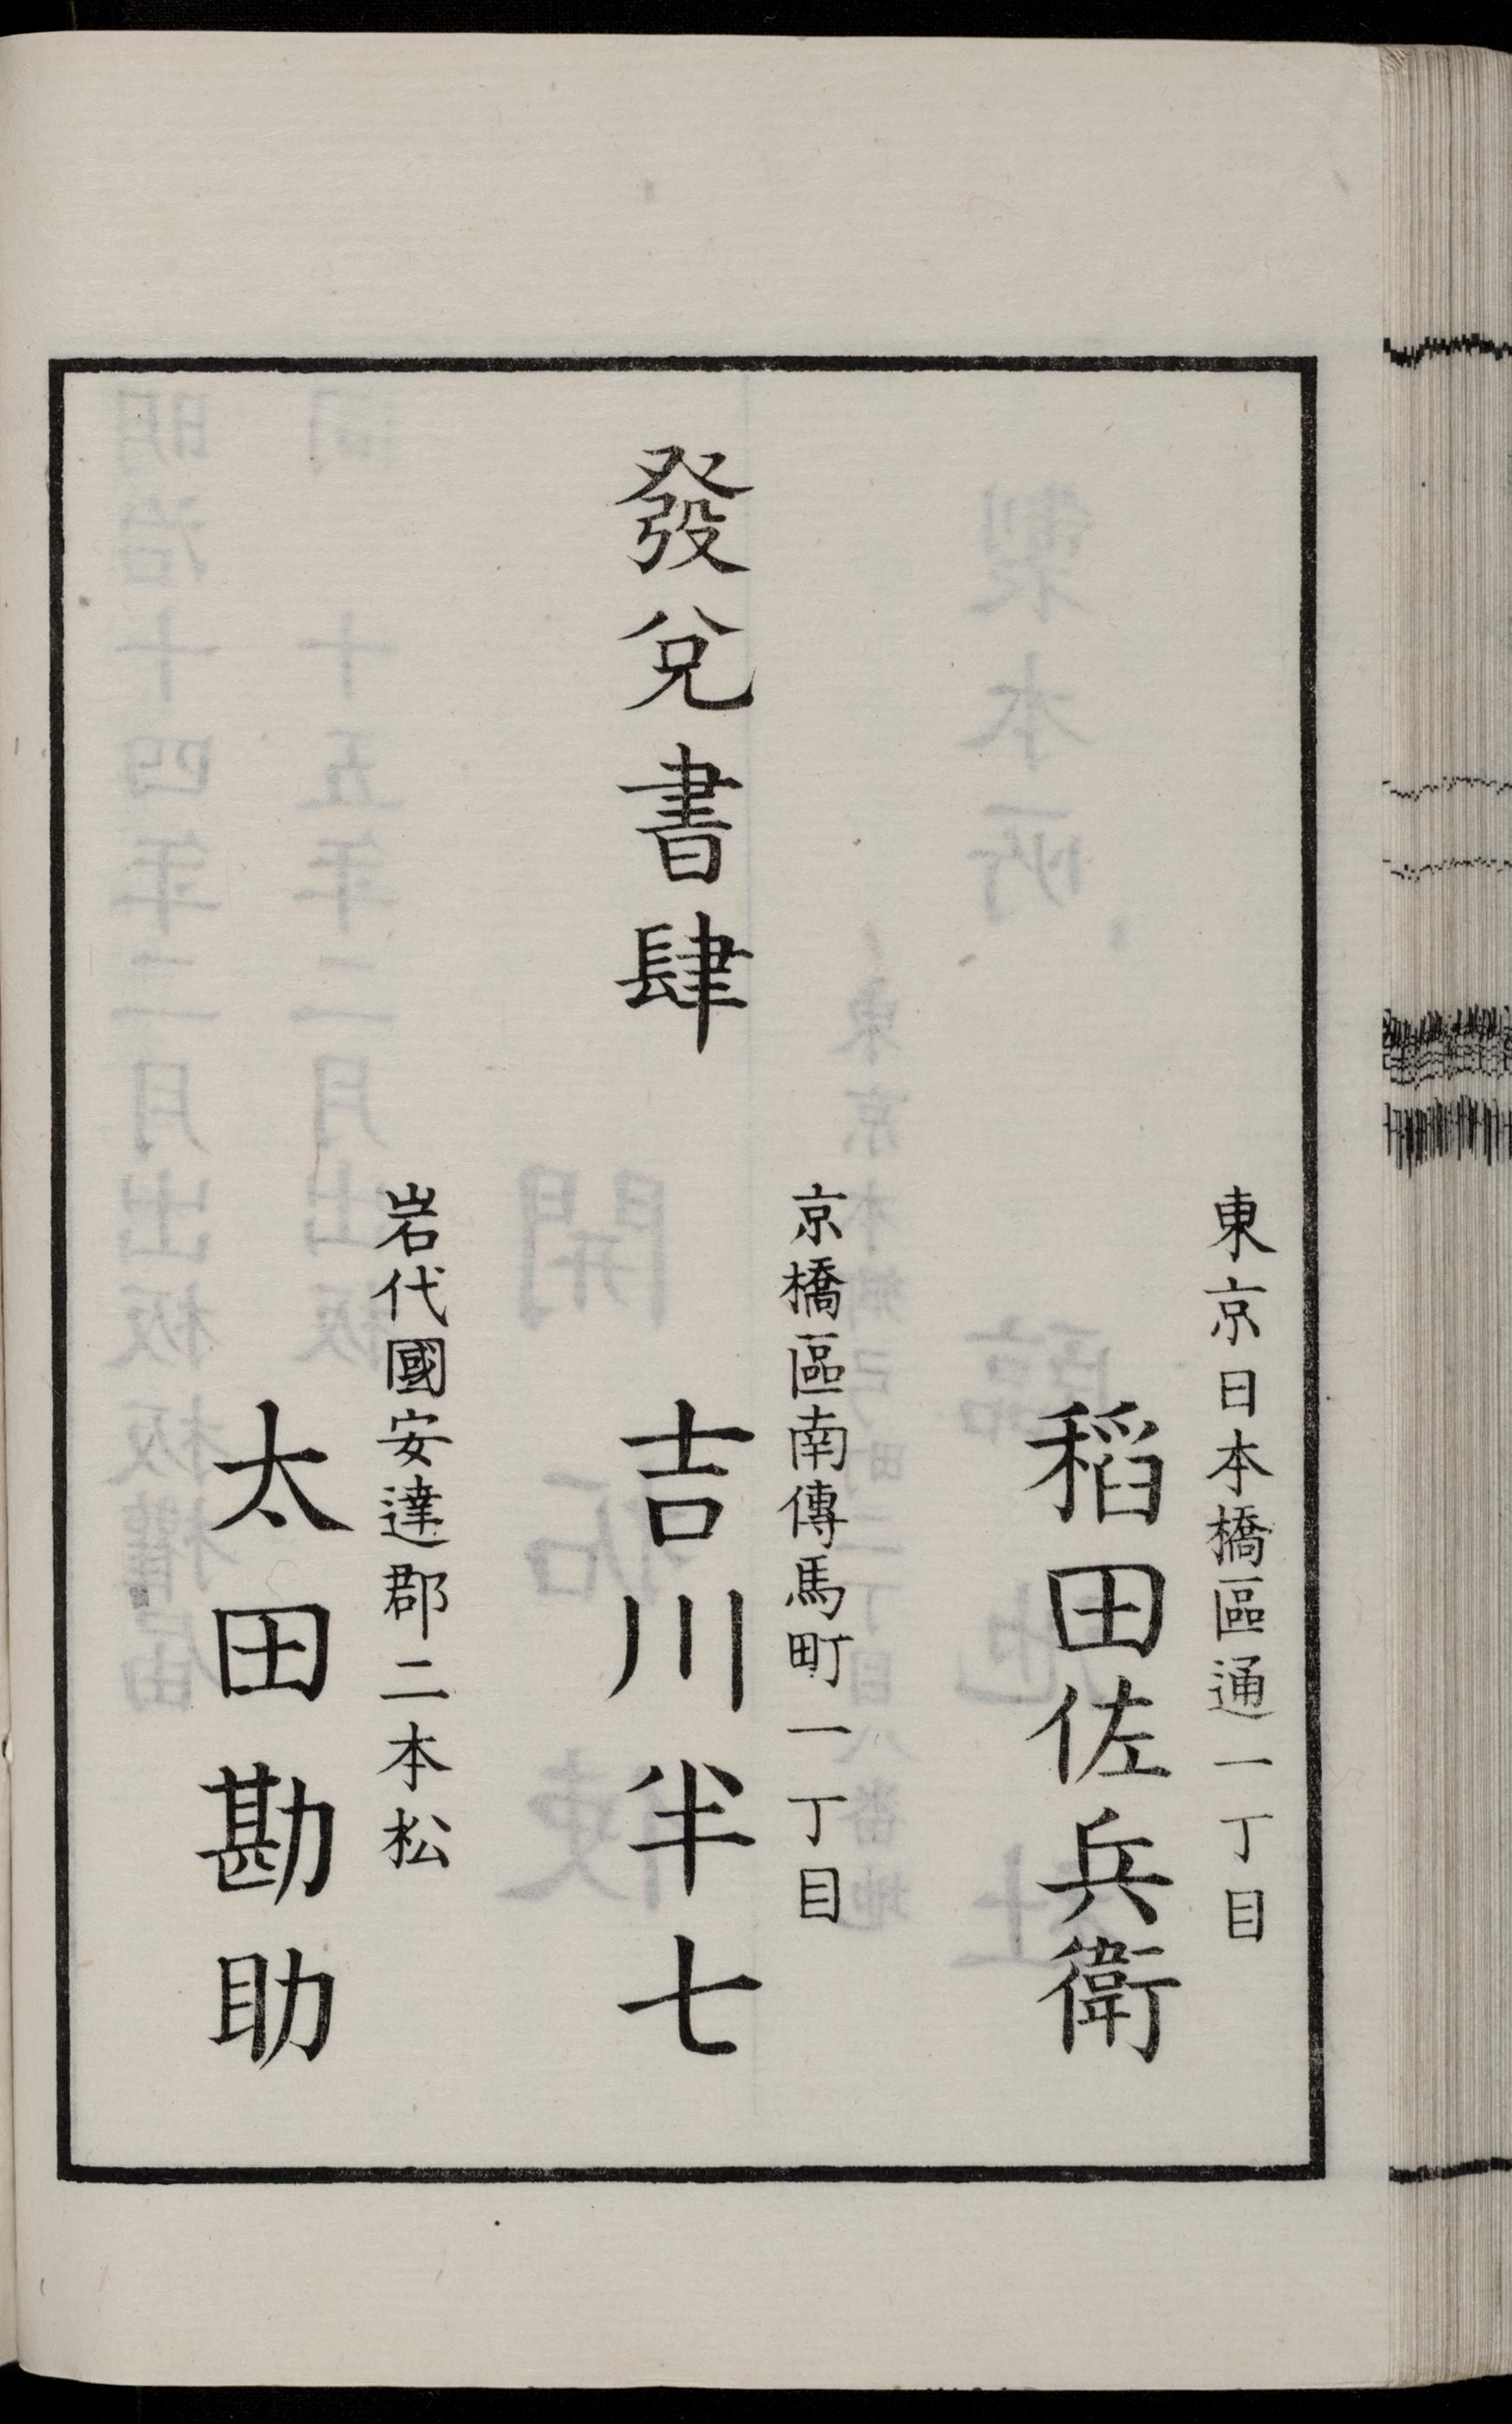 東京日本橋區通一丁目
稻田佐兵衛
發兌書肆
京橋區南傳馬町一丁目
吉川半七
岩代國安達郡二本松
太田勘助